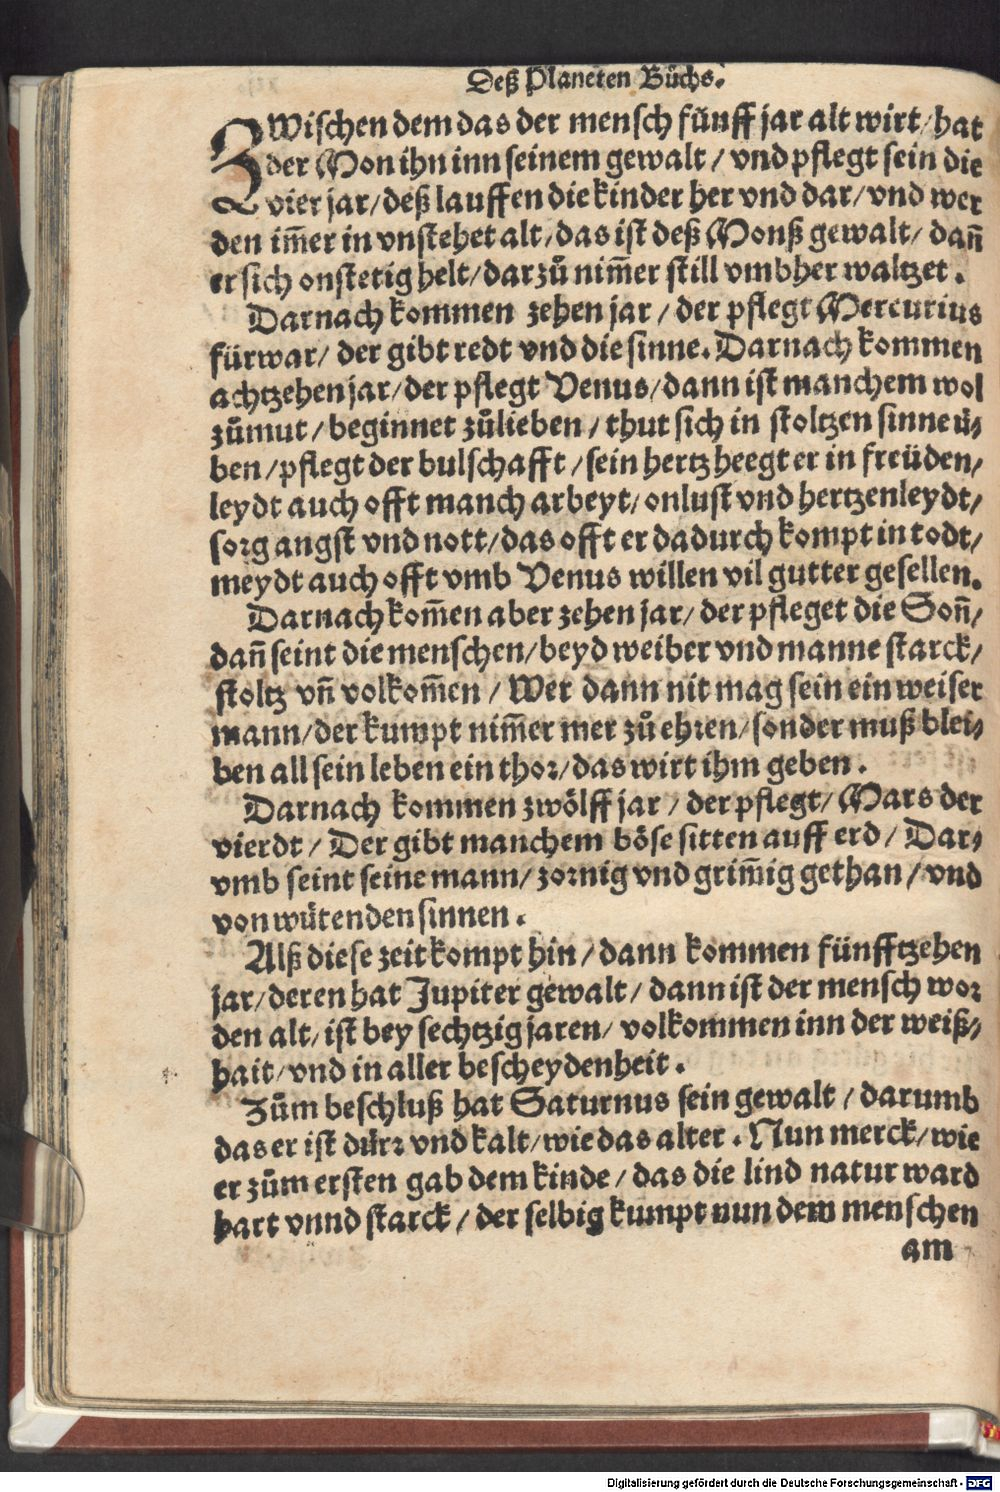 Deß Planeten Bůchs.
ZWischen dem das der mensch fünff jar alt wirt/ hat
der Mon ihn inn seinem gewalt / vnd pflegt sein die
vier jar/ deß lauffen die kinder her vnd dar/ vnd wer
den im̃er in vnstehet alt/ das ist deß Monß gewalt/ dañ
er sich onstetig helt/ darzů nim̃er still vmbher waltzet.
Darnach kommen zehen jar / der pflegt Mercurius
fürwar/ der gibt redt vnd die sinne. Darnach kommen
achtzehen jar/ der pflegt Venus/ dann ist manchem wol
zůmut / beginnet zůlieben / thut sich in stoltzen sinne ü⸗
ben / pflegt der bulschafft / sein hertz heegt er in freüden/
leydt auch offt manch arbeyt/ onlust vnd hertzenleydt/
sorg angst vnd nott/ das offt er dadurch kompt in todt/
meydt auch offt vmb Venus willen vil gutter gesellen.
Darnach kom̃en aber zehen jar/ der pfleget die Soñ/
dañ seint die menschen/ beyd weiber vnd manne starck/
stoltz vñ volkom̃en / Wer dann nit mag sein ein weiser
mann/ der kumpt nim̃er mer zů ehren/ sonder muß blei⸗
ben all sein leben ein thor/ das wirt ihm geben.
Darnach kommen zwölff jar / der pflegt/ Mars der
vierdt / Der gibt manchem böse sitten auff erd / Dar⸗
vmb seint seine mann/ zornig vnd grim̃ig gethan / vnd
von wütenden sinnen.
Alß diese zeit kompt hin / dann kommen fünfftzehen
jar/ deren hat Jupiter gewalt / dann ist der mensch wor
den alt/ ist bey sechtzig jaren/ volkommen inn der weiß⸗
hait/ vnd in aller bescheydenheit.
Zům beschluß hat Saturnus sein gewalt / darumb
das er ist dürr vnd kalt/ wie das alter. Nun merck/ wie
er zům ersten gab dem kinde / das die lind natur ward
hart vnnd starck / der selbig kumpt nun dem menschen
am
Digitalisierung gefördert durch die Deutsche Forschungsgemeinschaft - DFG